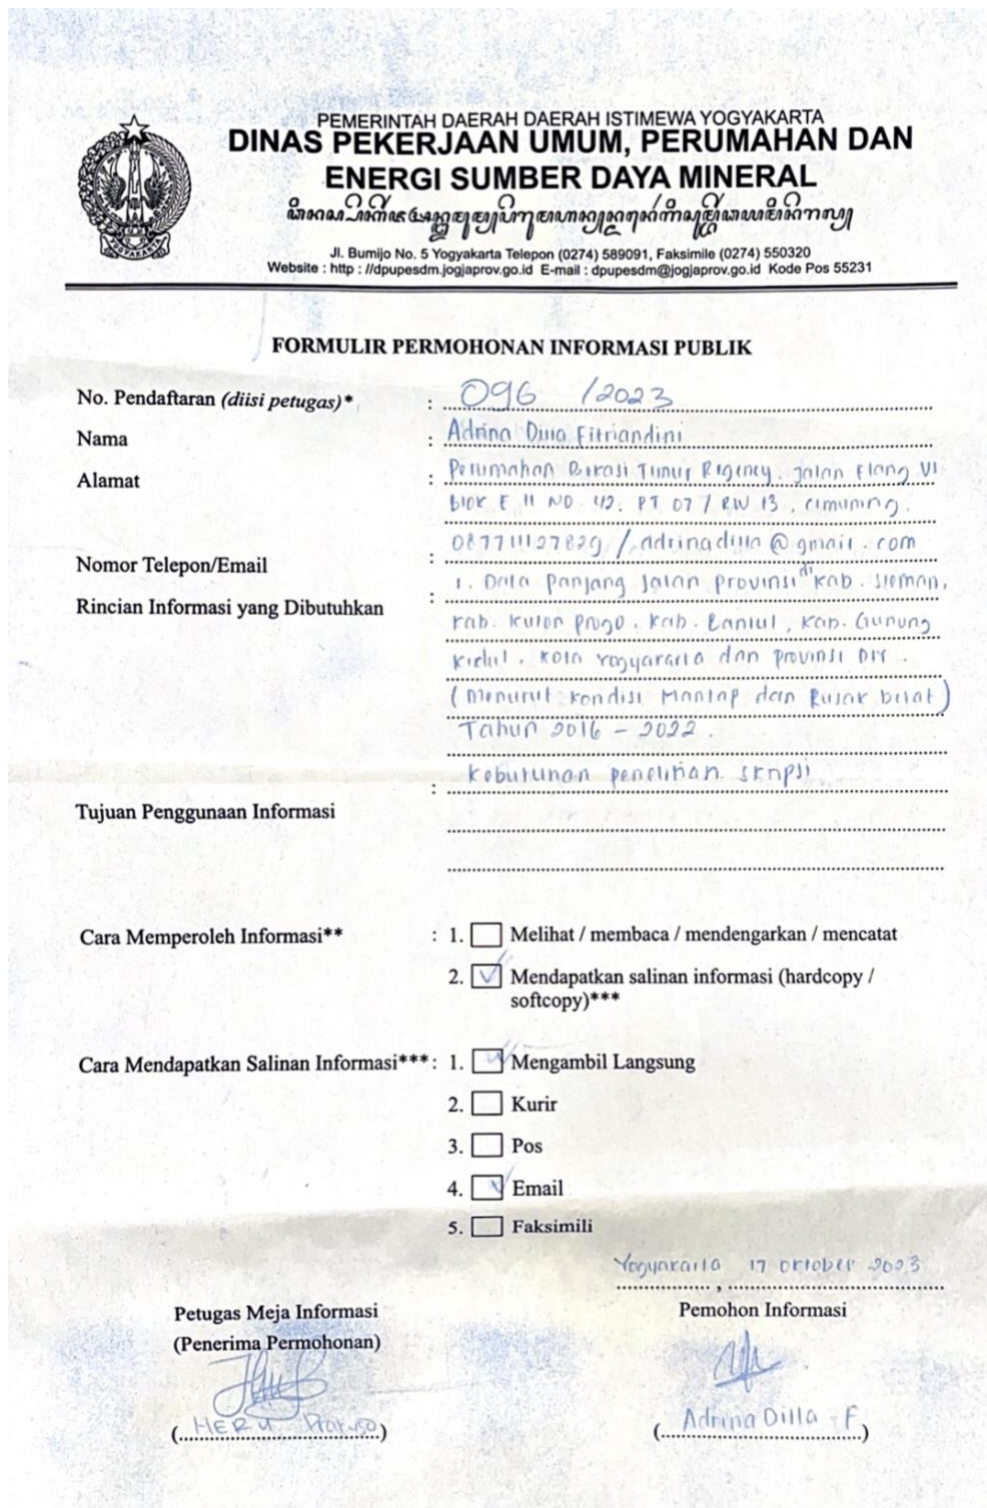 PEMERINTAH DAERAH DAERAH ISTIMEWA YOGYAKARTA
DINAS PEKERJAAN UMUM, PERUMAHAN DAN
ENERGI SUMBER DAYA MINERAL
Jl. Bumijo No. 5 Yogyakarta Telepon (0274) 589091, Faksimile (0274) 550320
Website : http : //dpupesdm.jogjaprov.go.id E-mail : dpupesdm@jogjaprov.go.id Kode Pos 55231
YOGYAKARTA
FORMULIR PERMOHONAN INFORMASI PUBLIK
No. Pendaftaran (diisi petugas)* : 096 /2023
Nama : Adrina Dilla Fitriandini
Alamat : Perumahan Bekasi Timur Regency. Jalan Elang VI
Blok E 11 NO. 42. RT 07 / RW 13, Cimuning.
Nomor Telepon/Email : 087711127829 / adrinadilla@gmail.com
Rincian Informasi yang Dibutuhkan : 1. Data Panjang Jalan Provinsi di Kab. Sleman,
Kab. Kulon Progo, Kab. Bantul, Kab. Gunung
Kidul, Kota Yogyakarta dan Provinsi DIY.
(Menurut kondisi Mantap dan Rusak berat)
Tahun 2016 - 2022.
Tujuan Penggunaan Informasi : Kebutuhan penelitian skripsi
Cara Memperoleh Informasi** : 1. Melihat / membaca / mendengarkan / mencatat
2. ✓ Mendapatkan salinan informasi (hardcopy /
softcopy)***
Cara Mendapatkan Salinan Informasi***: 1. ✓ Mengambil Langsung
2. Kurir
3. Pos
4. ✓ Email
5. Faksimili
Yogyakarta, 17 Oktober 2023
Petugas Meja Informasi
(Penerima Permohonan)
Pemohon Informasi
(HERU)
(Adrina Dilla F)